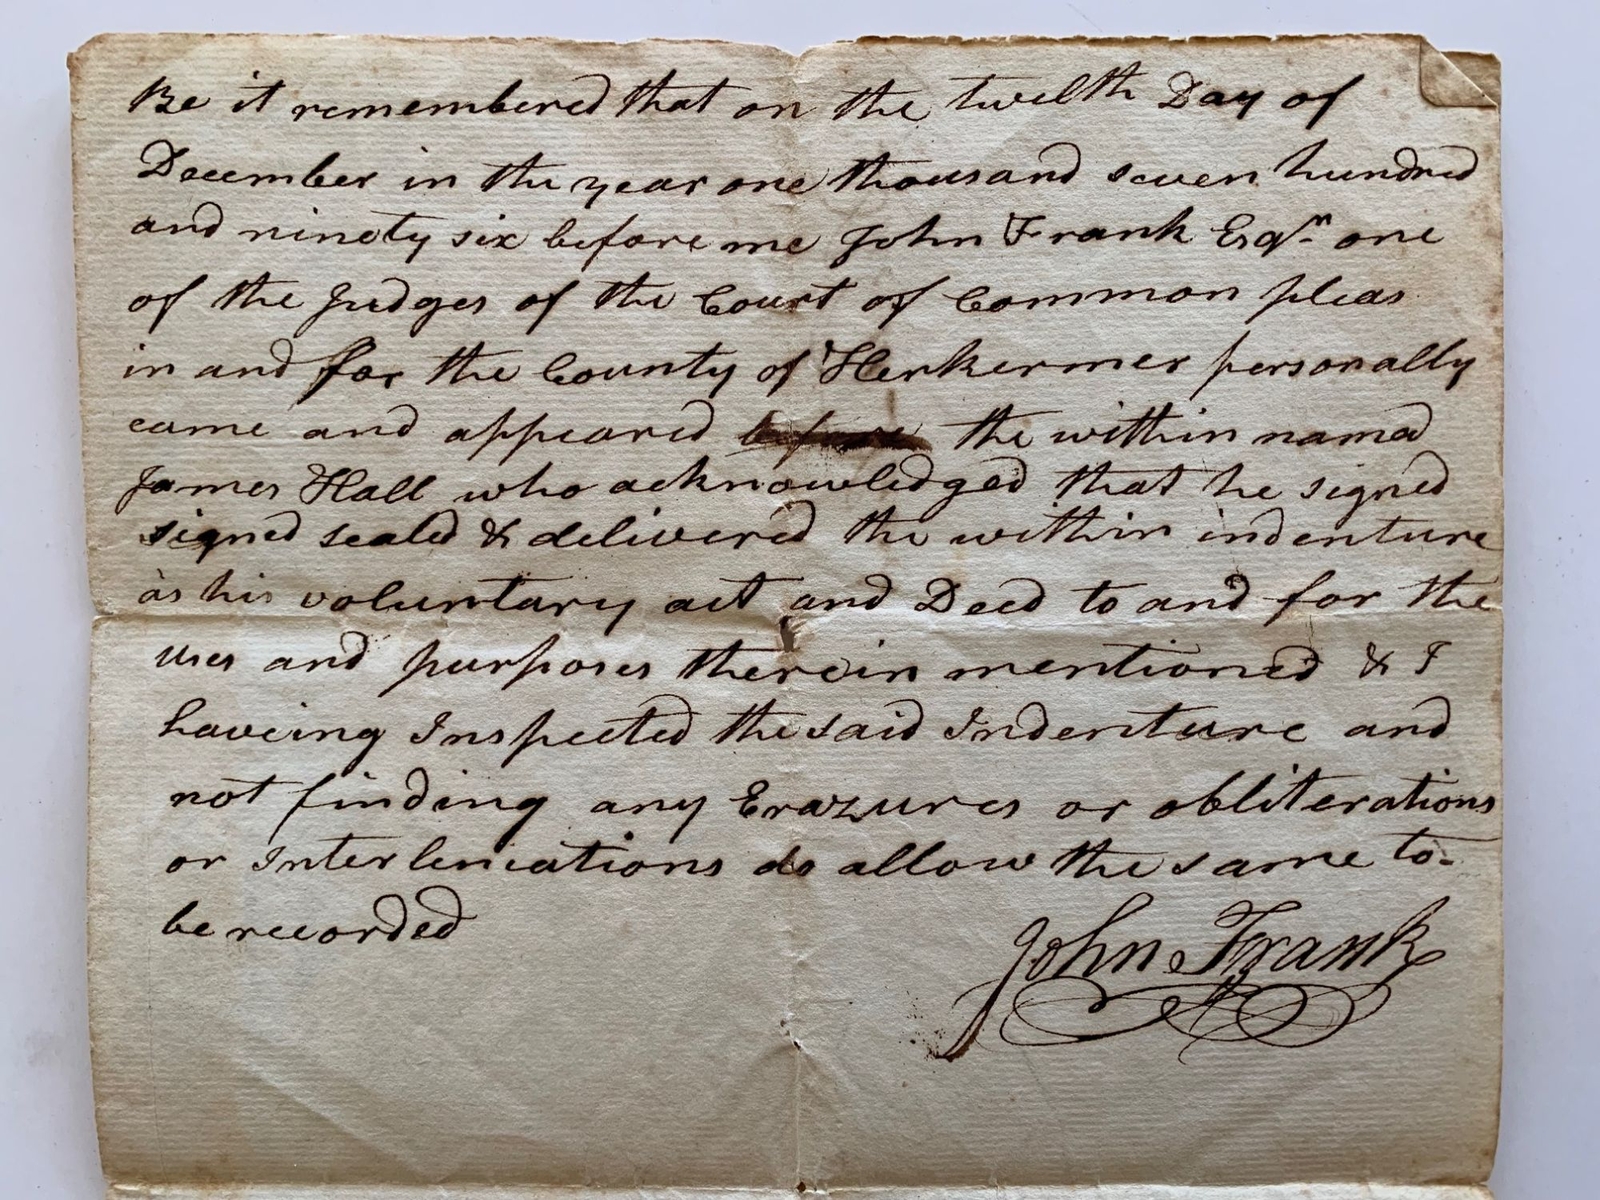 Be it remembered that on the twelth Day of
December in the year one thousand seven hundred
and ninety six before me John Frank Esqr one
of the Judges of the Court of Common pleas
in and for the County of Herkermer personally
came and appeared before the within named
James Hall who acknowledged that he signed
signed sealed & delivered the within indenture
as his voluntary act and Deed to and for the
uses and purposes therein mentioned & I
haveing Inspected the said Indenture and
not finding any Erazures or obliterations
or Interleniations do allow the same to
be recorded
John Frank